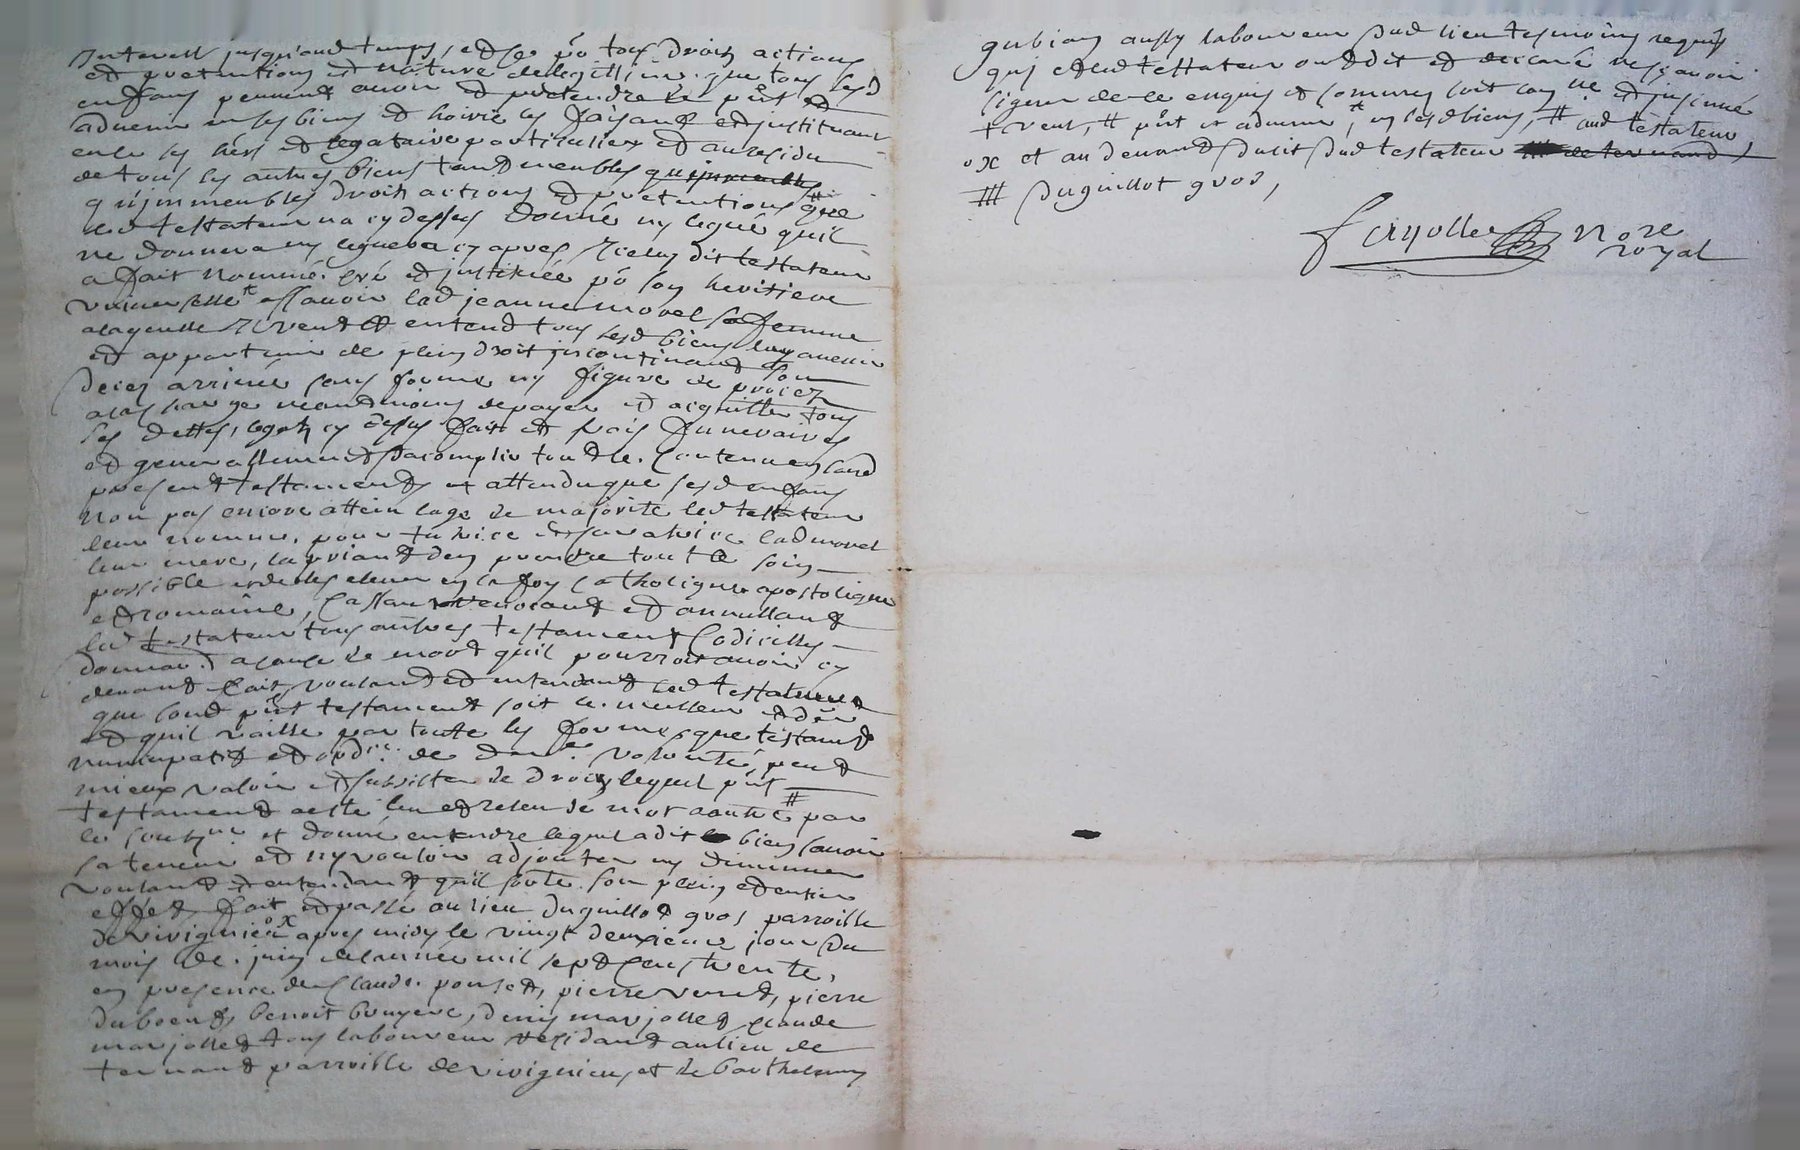 Interest jusqu'aud temps, et ce po tous droits actions
et pretentions et nature de legittime que tous lesd
enffans peuvent avoir et pretendre le pnt et
advenir en ses biens et hoirie les faisant et instituant
en ce ses hers et legataire particuliers et au residu
de tous les autres biens tant meubles quimmeubles
qu'immeubles droits actions et pretentions que
led testateur na cy dessus donné ny legué quil
ne donnera ny leguera cy apres Iceluy dit testateur
a fait nommé créé et instituée po son heritiere
universelle assavoir lad jeanne morel sa femme
a laquelle Il veut et entend tous sesd biens luy avenir
et appartenir de plein droit incontinant son
deces arrivé sans forme ny figure de proces
a la charge neantmoins de payer et acquitter tous
ses dettes, legats cy dessus fait et frais funeraires
et generallement d'acomplir tout le contenu en sond
present testament et attendu que sesd enffans
nont pas encore attein lage de majorité led testateur
leur nomme pour tutrice et curatrice lad morel
leur mere, la priant den prendre tout le soin
possible et de les elever en la foy catholique apostolique
et romaine, Cassant revocant et annullant
led testateur tous autres testament Codicilles
donnaon a cause de mort quil pourroit avoir cy
devant fait, voulant et entendant led testateur
que sond pnt testament soit le meilleur et der
et quil vaille par toute les formes que testamt
nuncupatif et ordre de dere volonté, peut
mieux valoir et subsister de droit lequel pnt
testament a esté leu et releu de mot a autre # par
le soub né et donné entendre lequel a dit bien scavoir
sa teneur et ny vouloir adjouter ny diminuer
voulant et entendant quil sorte son plein et entier
effet, fait et passé au lieu du guillot gros parroisse
de Virignieu ox apres midy le vingt deuxieme jour du
mois de juin de lannée mil sept cens trente,
en presence de Claude ponset, pierre veret, pierre
duboeuf, benoit bruyere, denis marjollet, Claude
marjollet tous laboureur residant au lieu de
ternand parroisse de virignieu, et de barthelemy
gubian aussy laboureur dud lieu tesmoins requis
qui et led testateur ont dit et declaré ne scavoir
signer de ce enquis et sommés soit con lle et insinué
+ veut, # pnt et advenir, + en sesd biens, # aud testateur
ox et au devant du lit dud testateur de ternand
# du guillot gros,
Fayolle Nore
royal